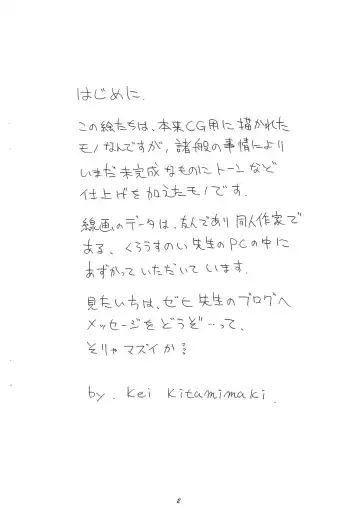 はじめに.
この絵たちは、本来CG用に描かれた
モノなんですが、諸般の事情により
いまだ未完成なものにトーンなど
仕上げを加えたモノです.
線画のデータは、友人であり同人作家で
ある、くろうすのい先生のPCの中に
あずかっていただいています.
見たいちは、ゼヒ先生のブログへ
メッセージをどうぞ…って、
そりゃマズイか?
by. Kei Kitamimaki.
8